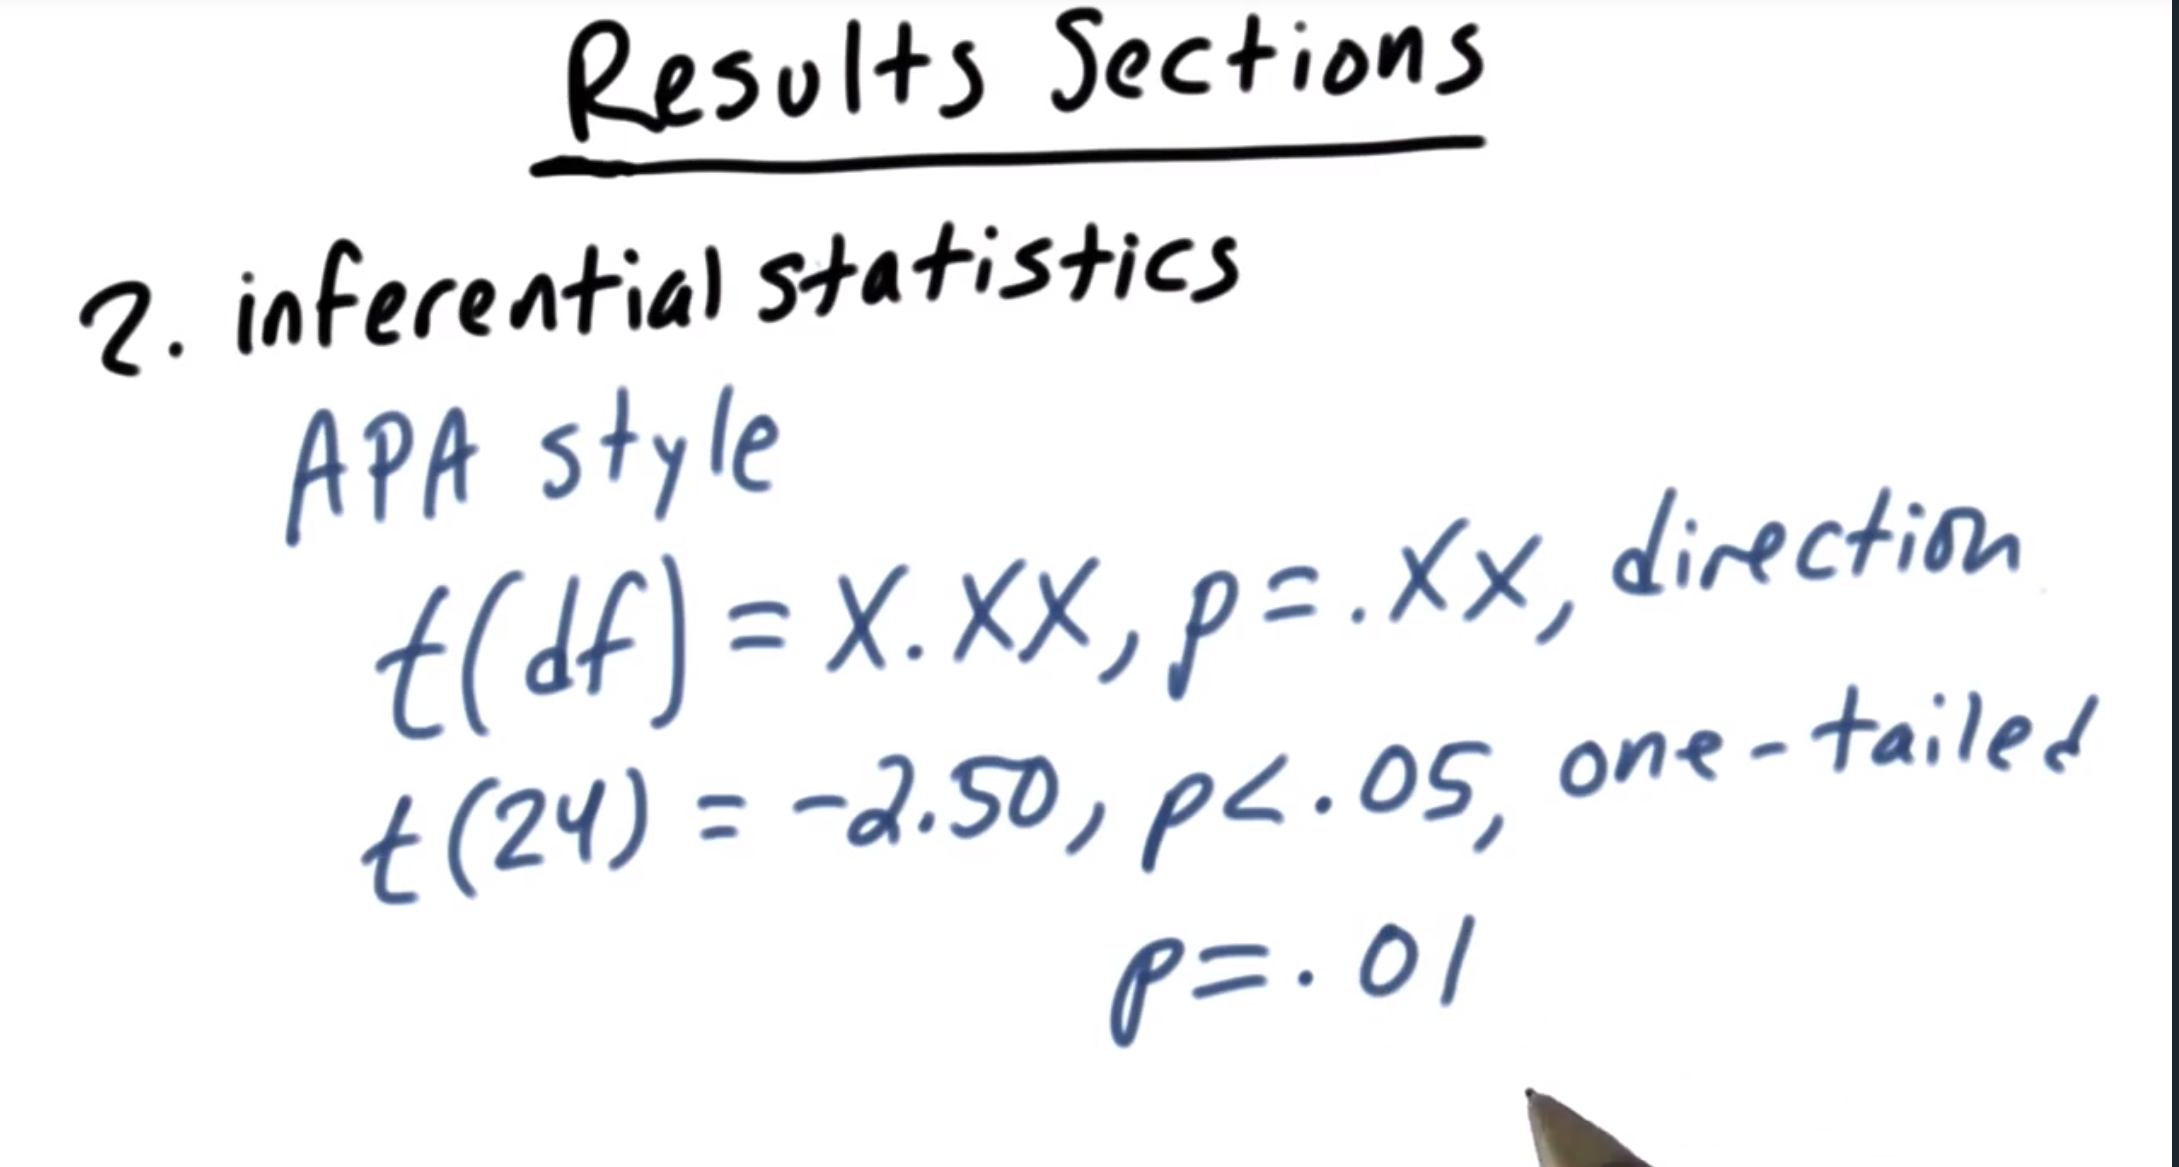 Results Sections
2. inferential statistics
APA style
t(df) = X.XX, p=.XX, direction
t(24) = -2.50, p<.05, one-tailed
p=.01